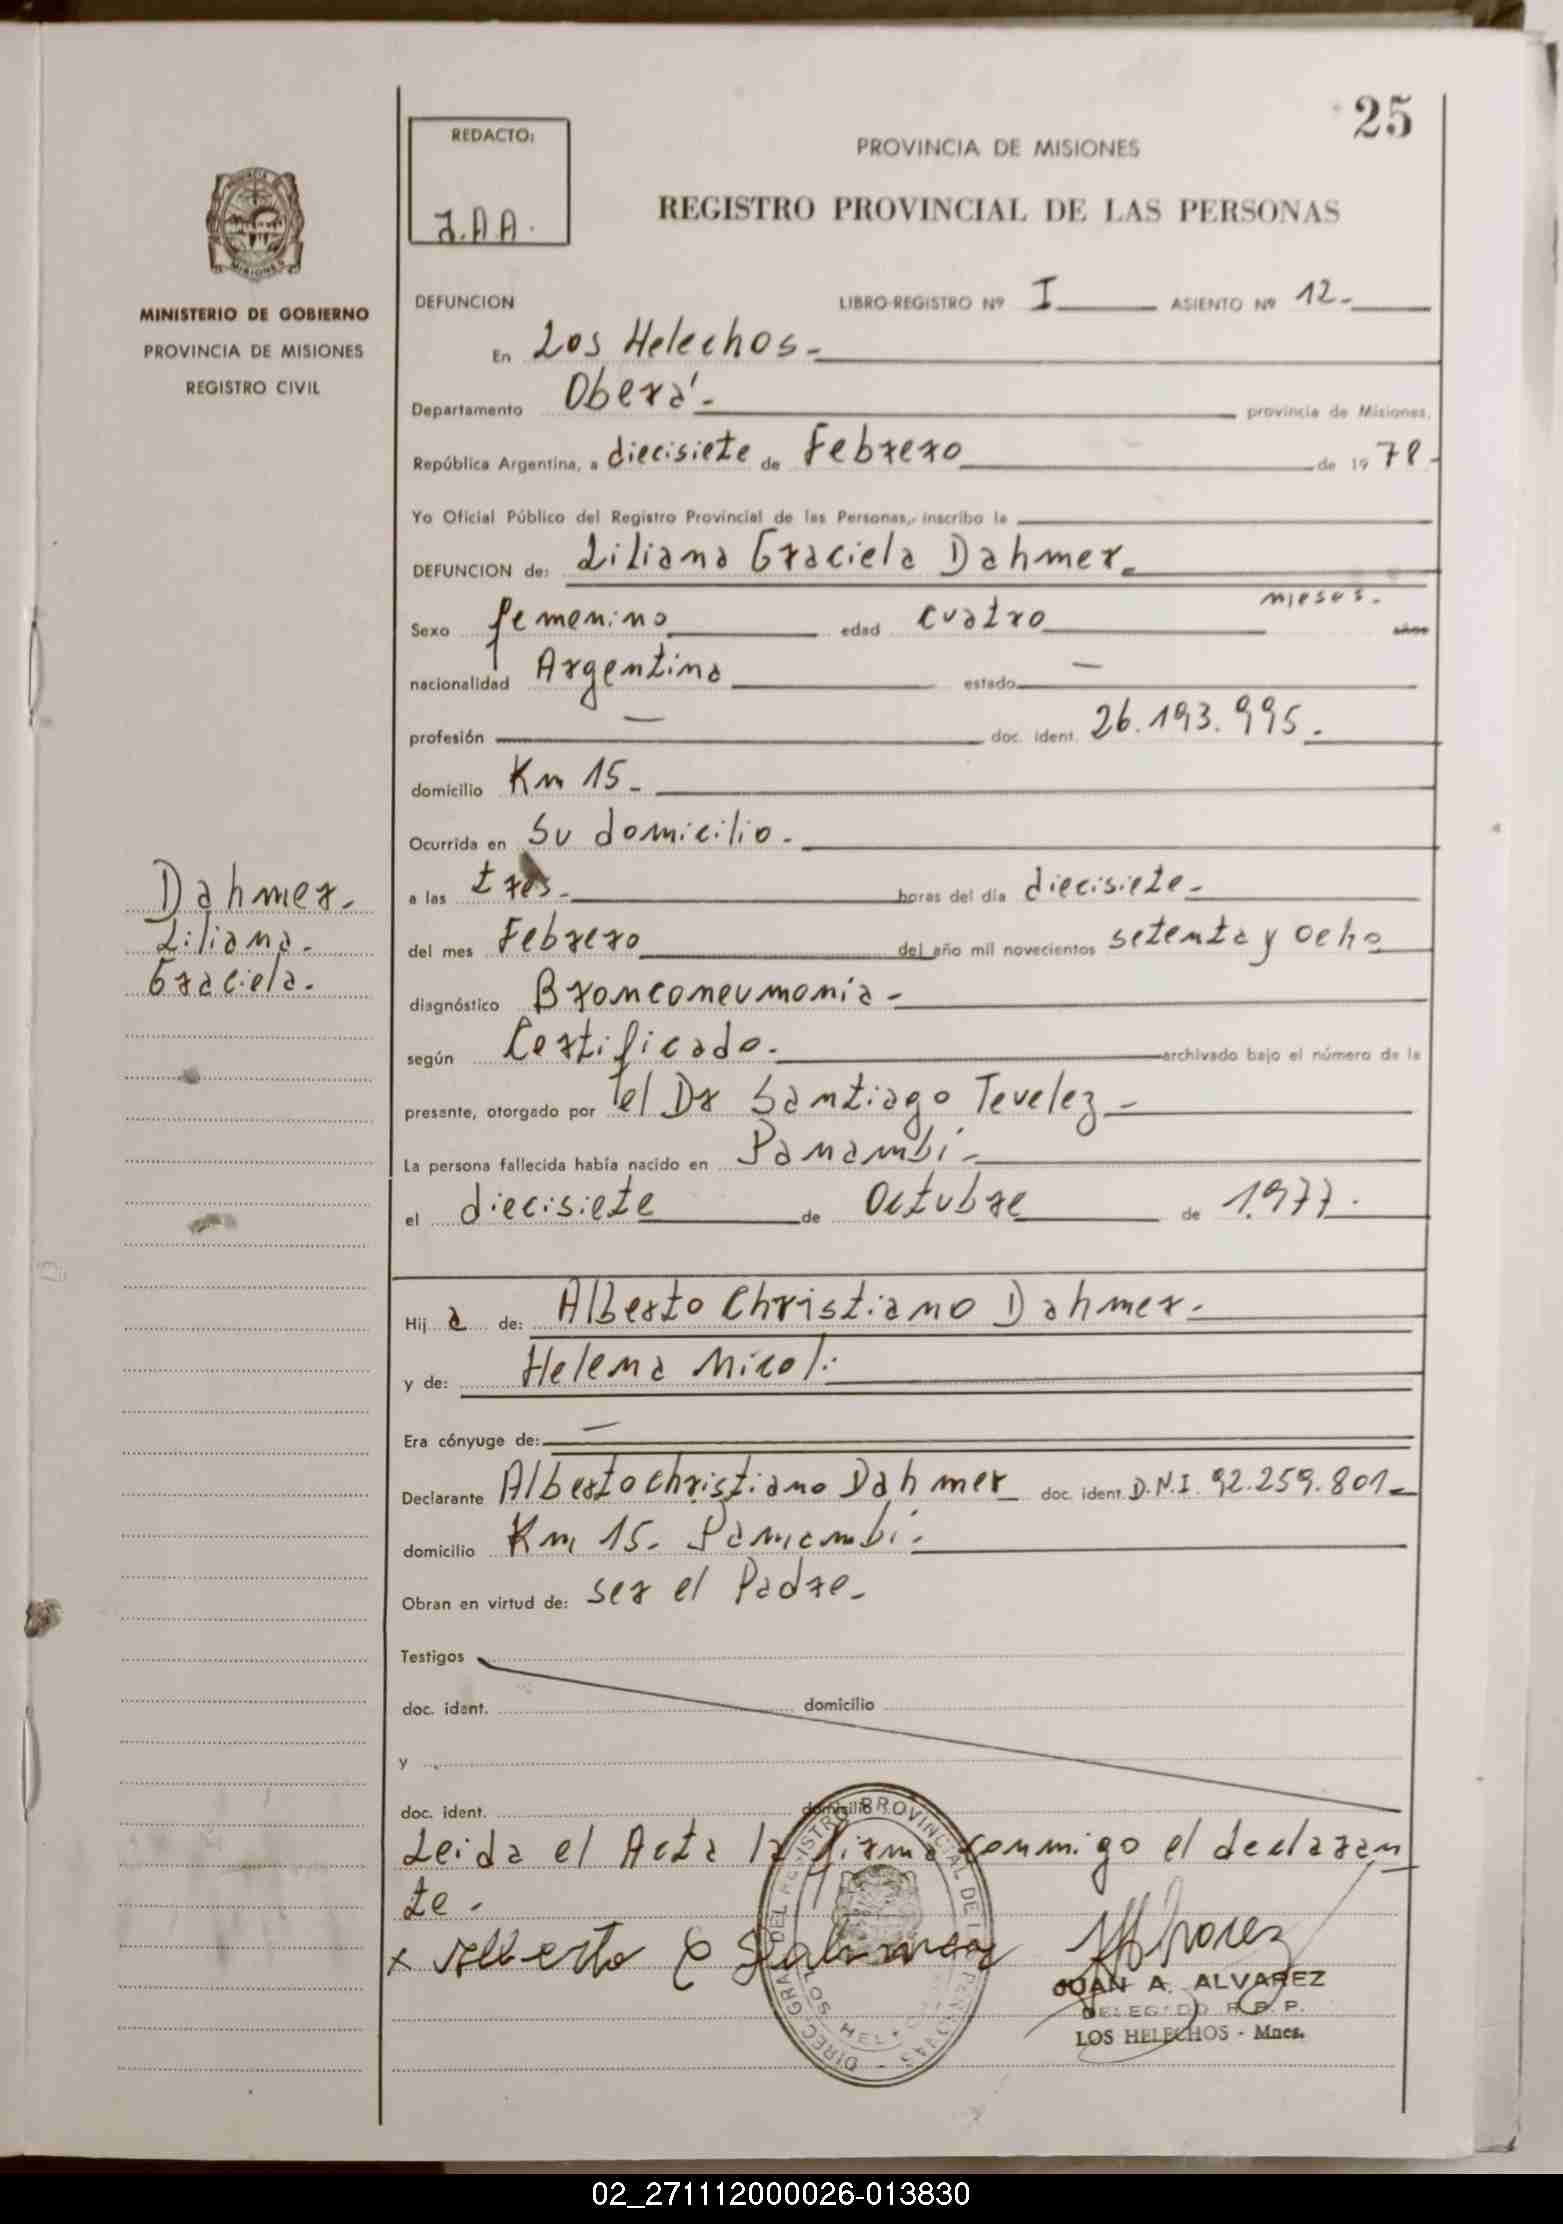 25
REDACTO:
J.A.A.
PROVINCIA DE MISIONES
REGISTRO PROVINCIAL DE LAS PERSONAS
MINISTERIO DE GOBIERNO
PROVINCIA DE MISIONES
REGISTRO CIVIL
DEFUNCION LIBRO-REGISTRO Nº I ASIENTO Nº 12-
En Los Helechos-
Departamento Oberá- provincia de Misiones,
República Argentina, a diecisiete de Febrero de 19 78-
Yo Oficial Público del Registro Provincial de las Personas, inscribo la
DEFUNCION de: Liliana Graciela Dahmer
Sexo femenino edad cuatro meses. años
nacionalidad Argentina estado —
profesión — doc. ident. 26.193.995.
domicilio Km 15-
Ocurrida en Su domicilio-
a las tres- horas del día diecisiete-
del mes Febrero del año mil novecientos setenta y ocho
diagnóstico Bronconeumonia-
según Certificado. archivado bajo el número de la
presente, otorgado por el Dr Santiago Tevelez-
La persona fallecida había nacido en Panambi-
el diecisiete de Octubre de 1.977.
Dahmer-
Liliana-
Graciela.
Hij a de: Alberto Christiano Dahmer-
y de: Helena Nicol.
Era cónyuge de: —
Declarante Alberto christiano Dahmer doc. ident. D.N.I. 92.259.801-
domicilio Km 15. Panambi.
Obran en virtud de: ser el Padre-
Testigos
doc. ident. domicilio
y
doc. ident. domicilio
Leida el Acta la firma conmigo el declaran
te-
x Alberto C Dahmer
DIREC. GRAL. DEL REGISTRO PROVINCIAL DE LAS PERSONAS
JUAN A. ALVAREZ
DELEGADO R. P. P.
LOS HELECHOS - Mnes.
02_271112000026-013830